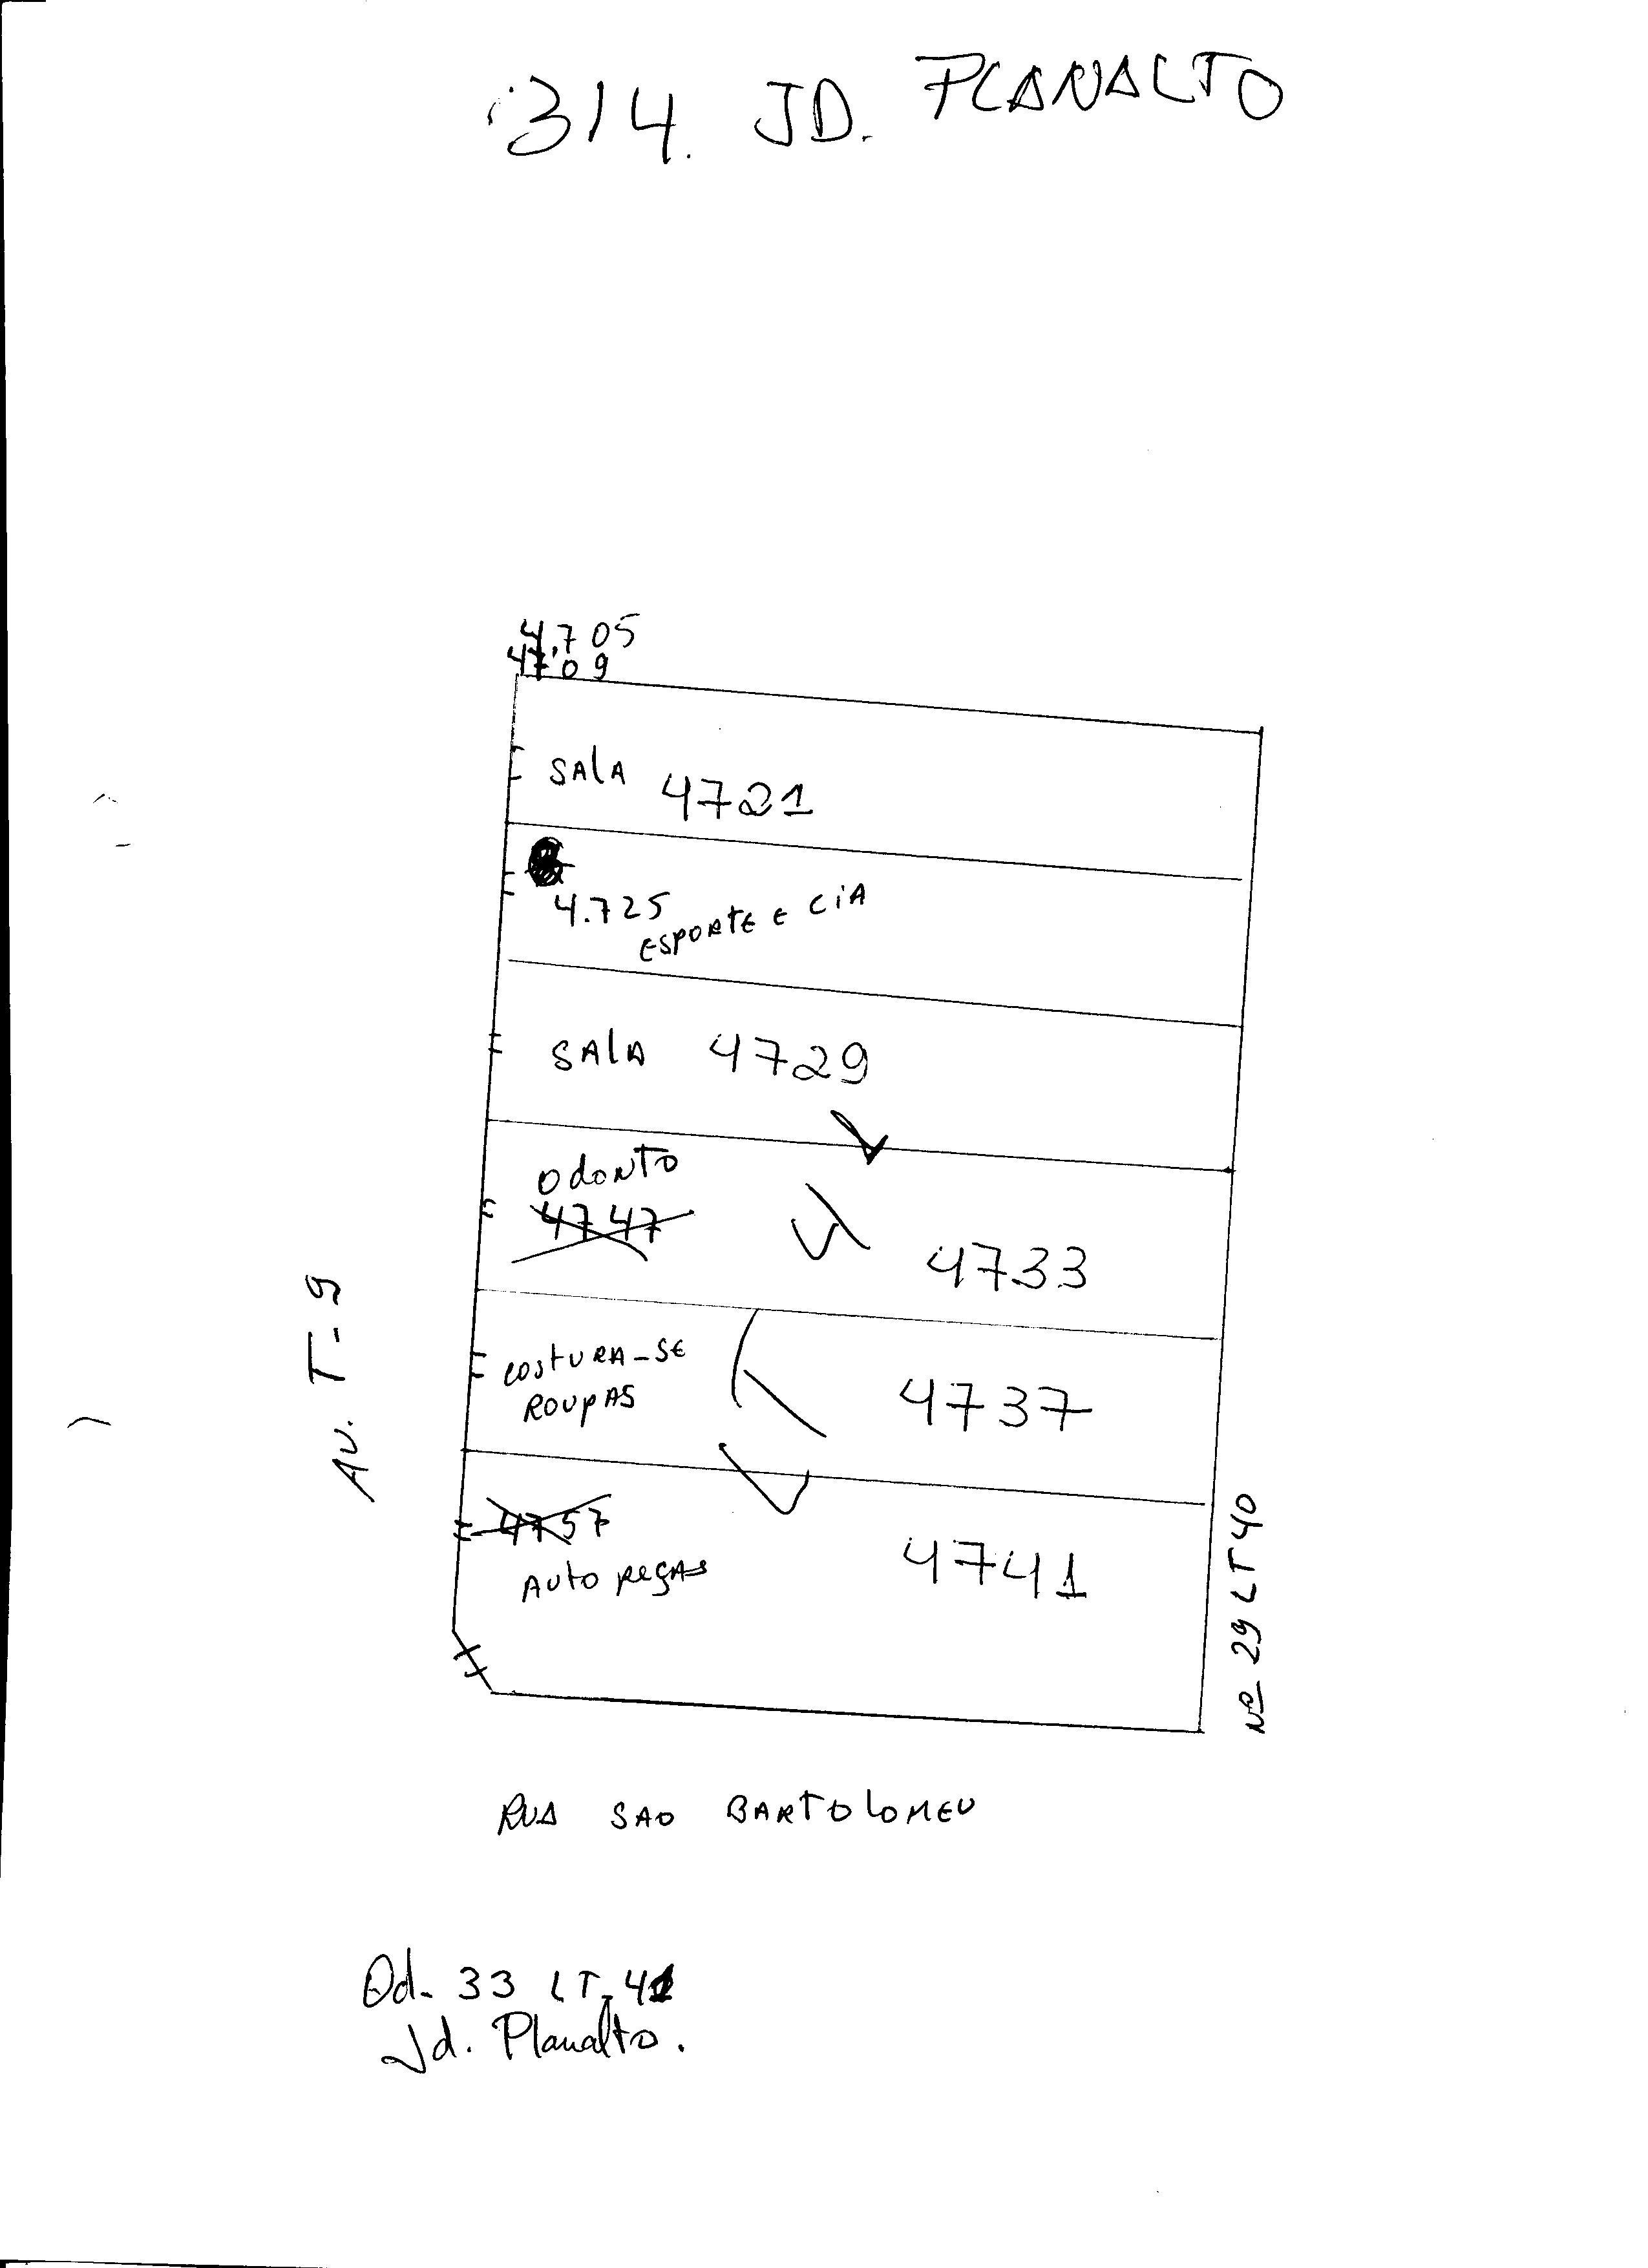 314. JD. PLANALTO
4.705
4709
SALA 4721
4.725
ESPORTE E CIA
SALA 4729
ODONTO
4747
4733
COSTURA-SE
ROUPAS
4737
4757
AUTO PEÇAS
4741
AV. T-9
Nº 29 LT 40
RUA SAO BARTOLOMEU
Qd. 33 LT. 41
Jd. Planalto.